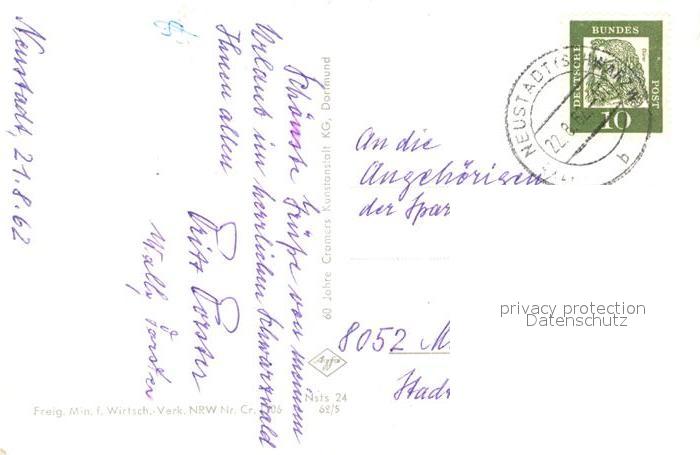 Neustadt, 21.8.62
Schönste Grüße von meinem
Urlaub im herrlichen Schwarzwald
Ihnen allen
Fritz Forster
Wally Forster
60 Jahre Cramers Kunstanstalt KG, Dortmund
Agfa
Nsts 24
62/5
Freig. Min. f. Wirtsch.-Verk. NRW Nr. Cr.
DEUTSCHE BUNDES POST
10
NEUSTADT (SCHWARZW)
22.8.62
b
An die
Angehörigen
der Spar
8052 M
Stadt
privacy protection
Datenschutz